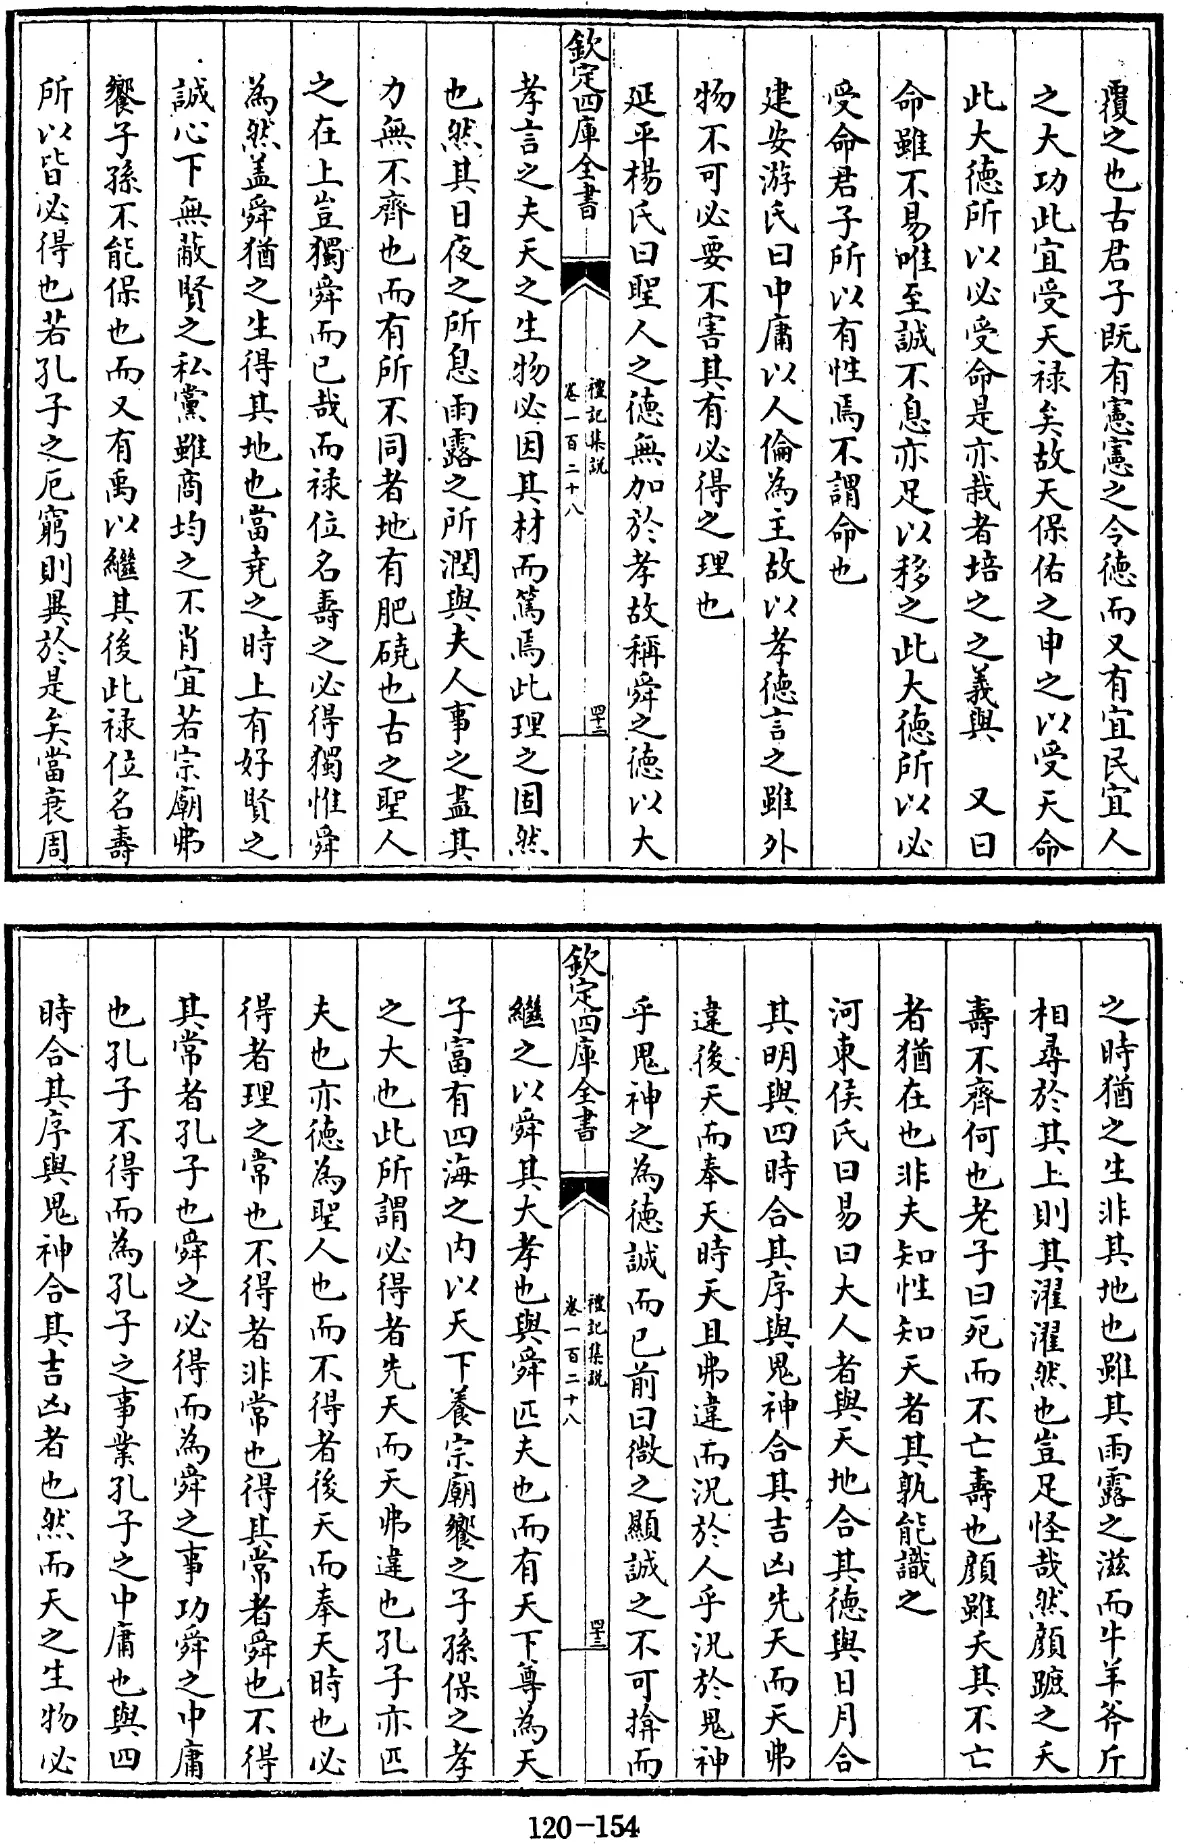 覆之也古君子既有憲憲之令德而又有宜民宜人
之大功此宜受天禄矣故天保佑之申之以受天命
此大德所以必受命是亦栽者培之之義與　又曰
命雖不易唯至誠不息亦足以移之此大德所以必
受命君子所以有性焉不謂命也
建安游氏曰中庸以人倫為主故以孝德言之雖外
物不可必要不害其有必得之理也
延平楊氏曰聖人之德無加於孝故稱舜之德以大
欽定四庫全書
禮記集説
卷一百二十八
四十二
孝言之夫天之生物必因其材而篤焉此理之固然
也然其日夜之所息雨露之所潤與夫人事之盡其
力無不齊也而有所不同者地有肥磽也古之聖人
之在上豈獨舜而已哉而禄位名壽之必得獨惟舜
為然盖舜猶之生得其地也當堯之時上有好賢之
誠心下無蔽賢之私黨雖商均之不肖宜若宗廟弗
饗子孫不能保也而又有禹以繼其後此禄位名壽
所以皆必得也若孔子之厄窮則異於是矣當衰周
之時猶之生非其地也雖其雨露之滋而牛羊斧斤
相尋於其上則其濯濯然也豈足怪哉然顔蹠之夭
壽不齊何也老子曰死而不亡壽也顔雖夭其不亡
者猶在也非夫知性知天者其孰能識之
河東侯氏曰易曰大人者與天地合其德與日月合
其明與四時合其序與鬼神合其吉凶先天而天弗
違後天而奉天時天且弗違而況於人乎況於鬼神
乎鬼神之為德誠而已前曰微之顯誠之不可揜而
欽定四庫全書
禮記集説
卷一百二十八
四十三
繼之以舜其大孝也與舜匹夫也而有天下尊為天
子富有四海之内以天下養宗廟饗之子孫保之孝
之大也此所謂必得者先天而天弗違也孔子亦匹
夫也亦德為聖人也而不得者後天而奉天時也必
得者理之常也不得者非常也得其常者舜也不得
其常者孔子也舜之必得而為舜之事功舜之中庸
也孔子不得而為孔子之事業孔子之中庸也與四
時合其序與鬼神合其吉凶者也然而天之生物必
120-154